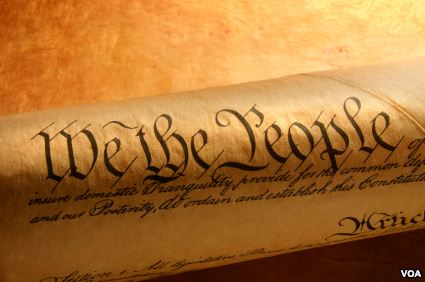 We the People of
insure domestic Tranquility, provide for the common def
and our Posterity, do ordain and establish this Constitut
Articl
Section. 1 All legislative
VOA